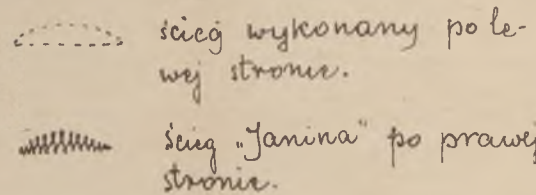 ścieg wykonany po le-
wej stronie.
ścieg „Janina" po prawej
stronie.